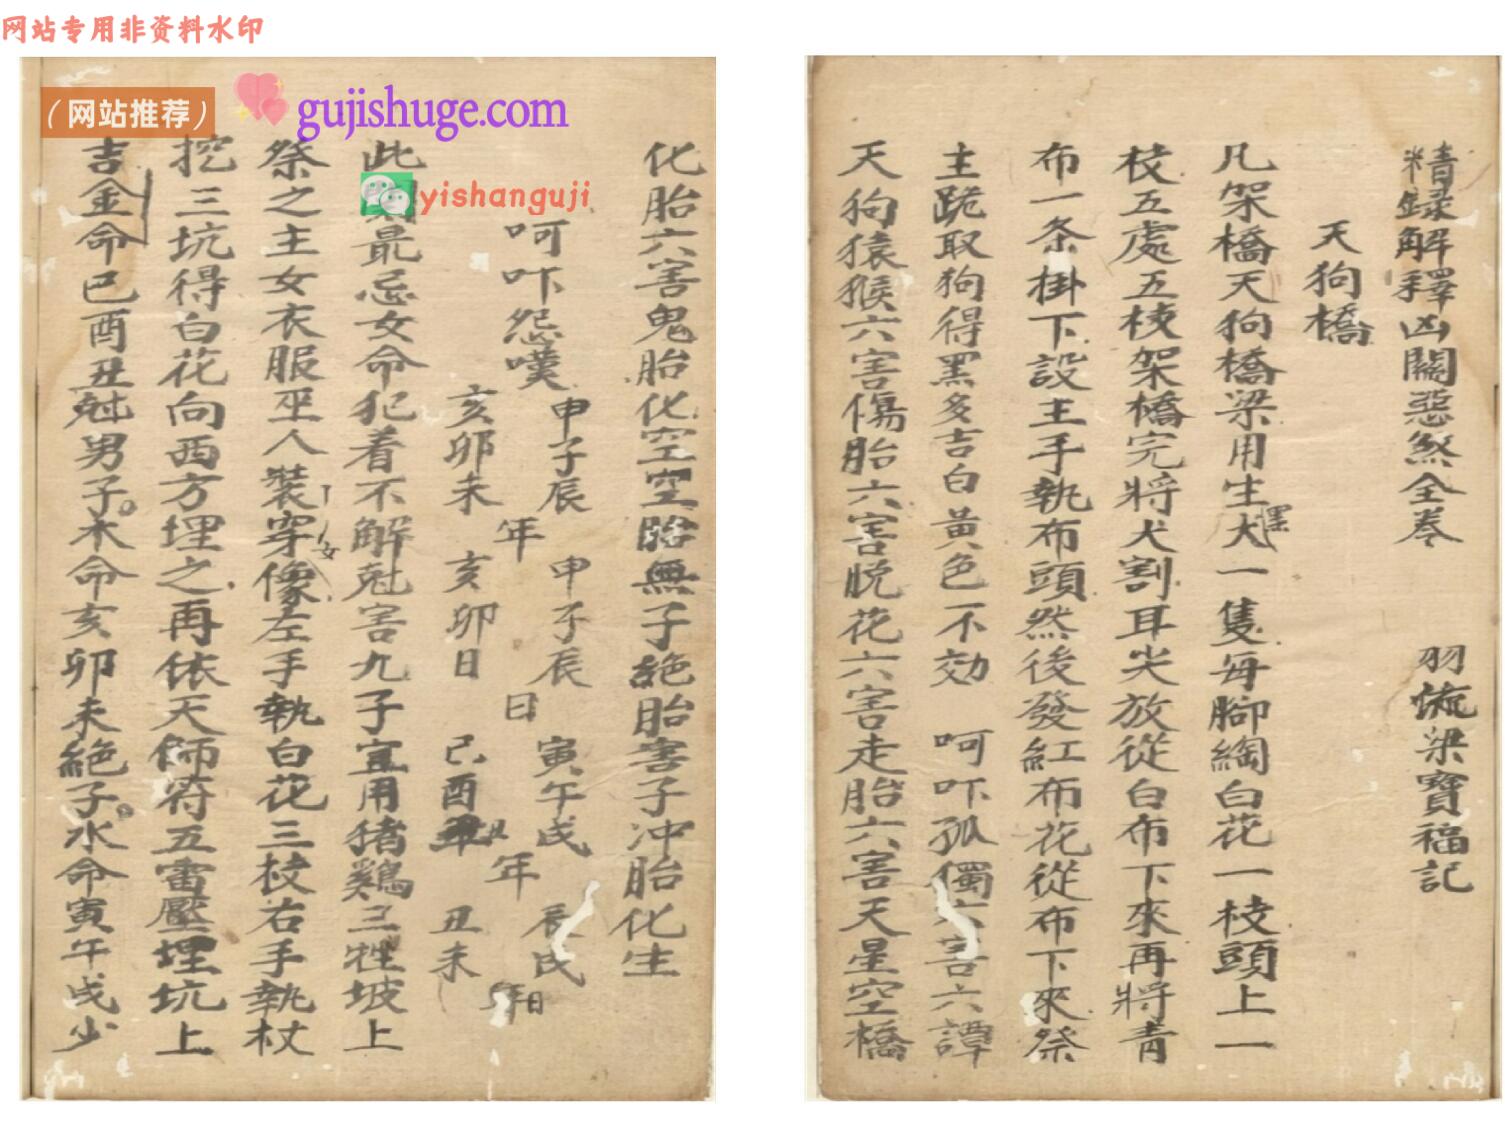 网站专用非资料水印
（网站推荐）
gujishuge.com
yishanguji
精録解釋凶關惡煞全卷 羽流梁寶福記
天狗橋
凡架橋天狗橋梁用生犬一隻每腳綯白花一枝頭上一
黑
枝五處五枝架橋完將犬割耳尖放從白布下來再將青
布一条掛下設主手執布頭然後發紅布花從布下來祭
主跪取狗得黑多吉白黄色不効 呵吓孤獨六害六譚
天狗猿猴六害傷胎六害脱花六害走胎六害天星空橋
化胎六害鬼胎化空空胎無子絶胎害子冲胎化生
呵吓怨嘆 申子辰 亥卯未 年 申子辰 亥卯日 日 寅午戌 己酉丑 年 辰戌 丑未 年日
此 最忌女命犯着不解尅害九子宜用猪鷄三牲坡上
祭之主女衣服巫人裝穿像左手執白花三枝右手執杖
女
挖三坑得白花向西方埋之再依天師符五雷壓埋坑上
吉金命巳酉丑尅男子木命亥卯未絶子水命寅午戌少